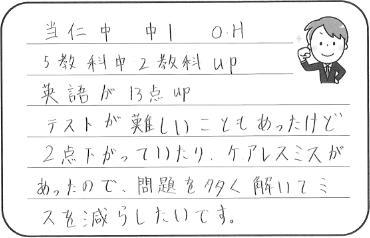 当仁中 中1 O.H
5教科中2教科up
英語が13点up
テストが難しいこともあったけど
2点下がっていたり、ケアレスミスが
あったので、問題を多く解いてミ
スを減らしたいです。